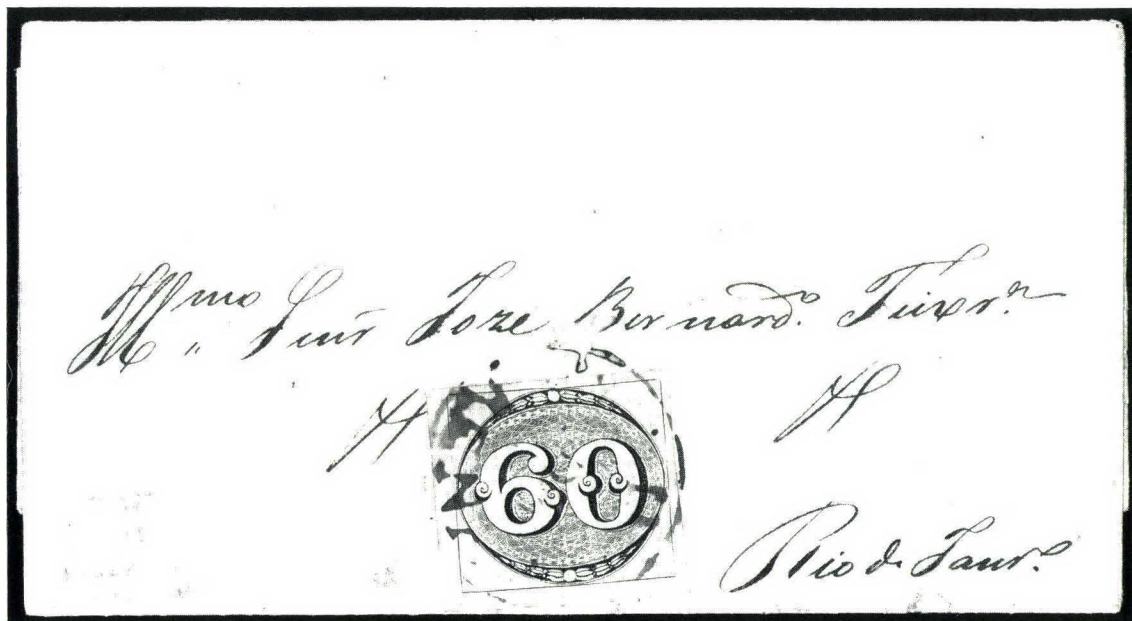 Illmo Snr Joze Bernardo.
60
Rio de Janro